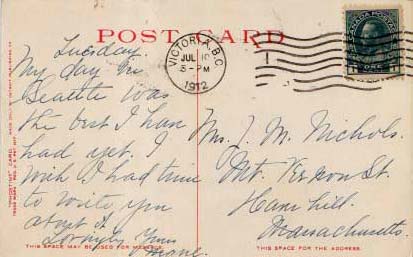 POST CARD
VICTORIA, B.C.
JUL 1
5-PM
1912
CANADA POSTAGE
ONE
Tuesday.
My day in
Seattle was
the best I have
had yet. I
wish I had time
to write you
about it.
Lovingly Yours
Mrs. J. M. Nichols.
Mt. Vernon St.
Haverhill.
Massachusetts.
"PHOSTINT" CARD
THIS SPACE MAY BE USED FOR MESSAGE.
THIS SPACE FOR THE ADDRESS.